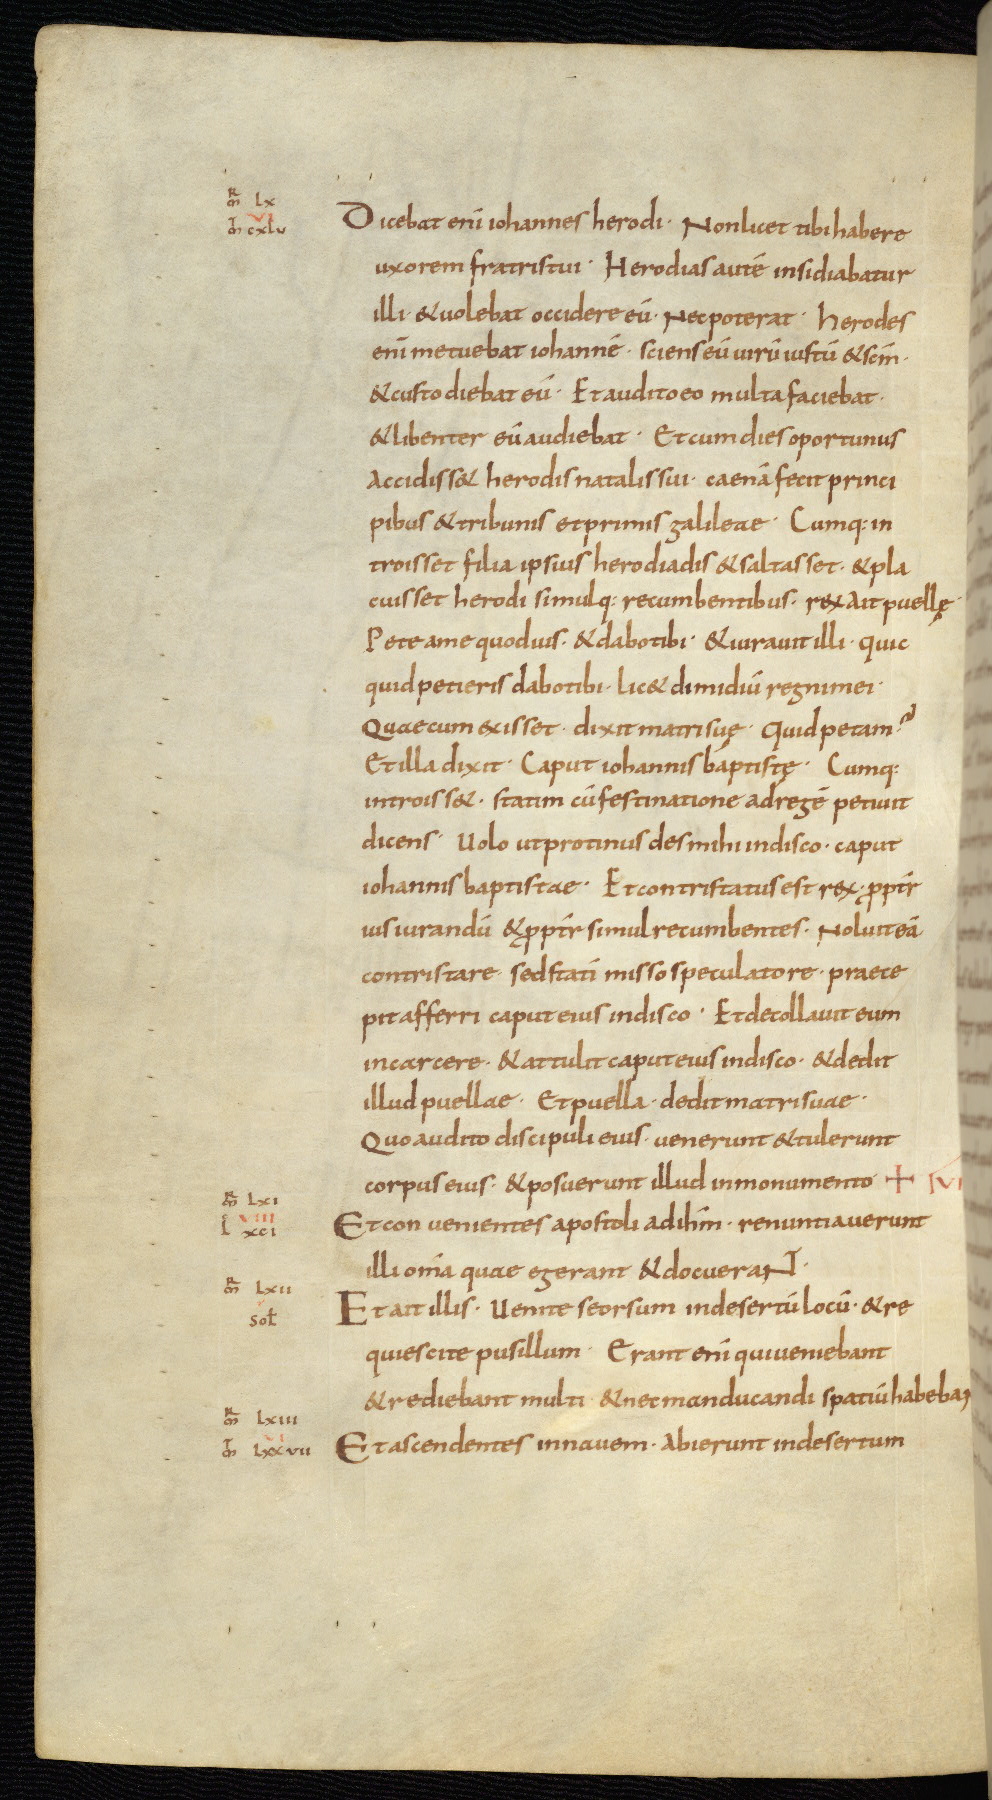 mr̄ lx
vi
mt̄ cxlv
Dicebat enī iohannes herodi · Non licet tibi habere
uxorem fratris tui · Herodias autē insidiabatur
illi · & volebat occidere eū · Nec poterat · herodes
enī metuebat iohannē · sciens eū virū iustū & scm̄ ·
& custodiebat eū · Et audito eo multa faciebat ·
& libenter eū audiebat · Et cum dies oportunus
accidiss& herodis natalis sui · caenā fecit princi
pibus & tribunis et primis galileae · Cumq: in
troisset filia ipsius herodiadis & saltasset · & pla
cuisset herodi simulq: recumbentibus · rex ait puellę ·
Pete a me quod vis · & dabo tibi · & iuravit illi · quic
quid petieris dabo tibi · lic& dimidiū regni mei ·
Quae cum exisset · dixit matri suę · Quid petam ?
Et illa dixit · Caput iohannis baptistę · Cumq:
introiss& · statim cū festinatione ad regē petivit
dicens · Volo ut protinus des mihi in disco · caput
iohannis baptistae · Et contristatus est rex · ꝓpt̄r
ius iurandū & ꝓpt̄r simul recumbentes · Noluit eā
contristare · sed statī misso speculatore · praece
pit afferri caput eius in disco · Et decollavit eum
in carcere · & attulit caput eius in disco · & dedit
illud puellae · Et puella · dedit matri suae ·
Quo audito discipuli eius · venerunt & tulerunt
corpus eius · & posuerunt illud in monumento + vi
mr̄ lxi
viii
l xci
Et convenientes apostoli ad ihm̄ · renuntiaverunt
illi om̄ia quae egerant & docuerant ·
mr̄ lxii
sol̄
Et ait illis · Venite seorsum in desertū locū · & re
quiescite pusillum · Erant enī qui veniebant
& rediebant multi · & nec manducandi spatiū habebant
mr̄ lxiii
vi
mt̄ lxxvii
Et ascendentes in navem · abierunt in desertum